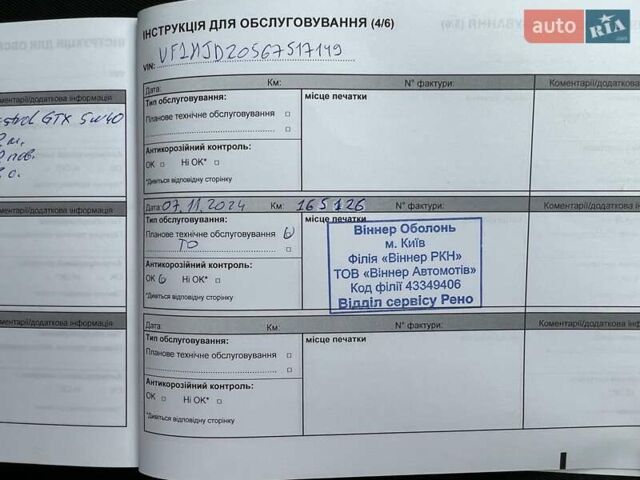 ІНСТРУКЦІЯ ДЛЯ ОБСЛУГОВУВАННЯ (4/6)
VIN: VF1HJD20567517149
AUTO RIA .com
Дата: Км: N° фактури: Коментарі/додаткова
Тип обслуговування:
місце печатки
Планове технічне обслуговування □
Антикорозійний контроль:
OK □ Ні OK* □
*Дивіться відповідну сторінку
Дата: 07.11.2024 Км: 165126 N° фактури: Коментарі/додаткова ін
Тип обслуговування:
місце печатки
Планове технічне обслуговування
ТО
Антикорозійний контроль:
OK Ні OK* □
*Дивіться відповідну сторінку
Віннер Оболонь
м. Київ
Філія «Віннер РКН»
ТОВ «Віннер Автомотів»
Код філії 43349406
Відділ сервісу Рено
Дата: Км: N° фактури: Коментарі/додаткова інф
Тип обслуговування:
місце печатки
Планове технічне обслуговування □
Антикорозійний контроль:
OK □ Ні OK* □
*Дивіться відповідну сторінку
ментарі/додаткова інформація
GTX 5w40
оментарі/додаткова інформація
ментарі/додаткова інформація